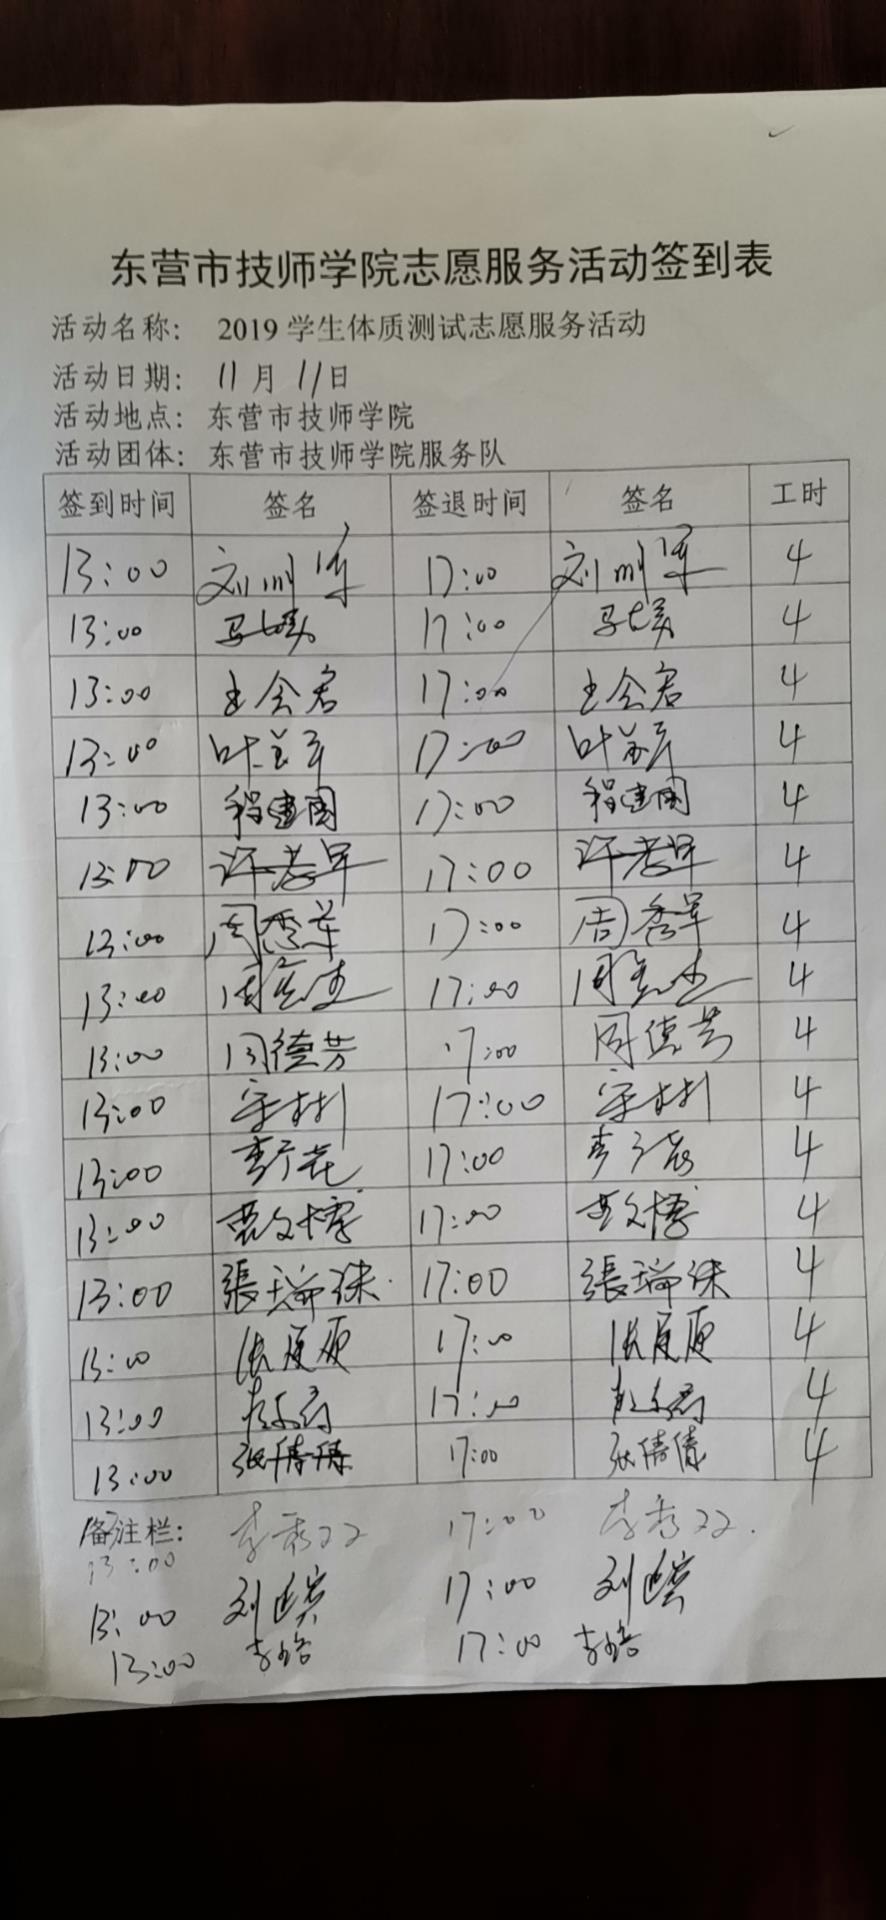 东营市技师学院志愿服务活动签到表
活动名称： 2019 学生体质测试志愿服务活动
活动日期： 11月 11日
活动地点： 东营市技师学院
活动团体： 东营市技师学院服务队
签到时间 签名 签退时间 签名 工时
13:00 刘 17:00 刘 4
13:00 马 17:00 马 4
13:00 王会君 17:00 王会君 4
13:00 叶 17:00 叶 4
13:00 程建国 17:00 程建国 4
13:00 许孝军 17:00 许孝军 4
13:00 周秀军 17:00 周秀军 4
13:00 周 17:00 周 4
13:00 周德芳 17:00 周德芳 4
13:00 宋彬 17:00 宋彬 4
13:00 李 17:00 李 4
13:00 文博 17:00 文博 4
13:00 張瑞 17:00 張瑞 4
13:00 张 17:00 张 4
13:00 17:00 4
13:00 张倩倩 17:00 张倩倩 4
备注栏： 李秀 17:00 李秀
13:00
13:00 刘 17:00 刘
13:00 李 17:00 李